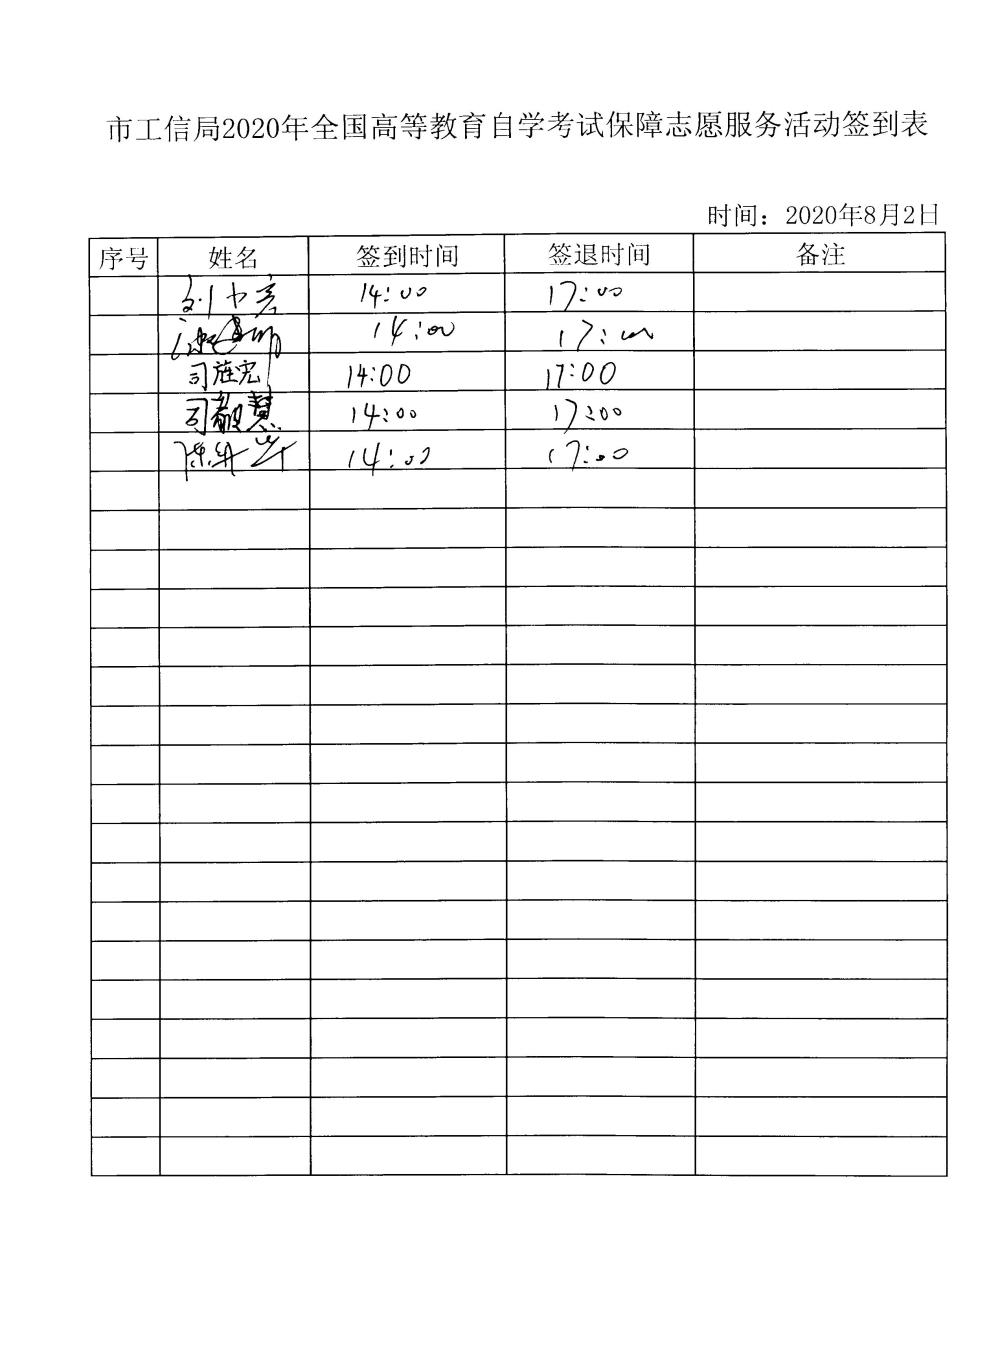 市工信局2020年全国高等教育自学考试保障志愿服务活动签到表
时间：2020年8月2日
序号 姓名 签到时间 签退时间 备注
14:00 17:00
14:00 17:00
司旌宏 14:00 17:00
司毅慧 14:00 17:00
14:00 17:00